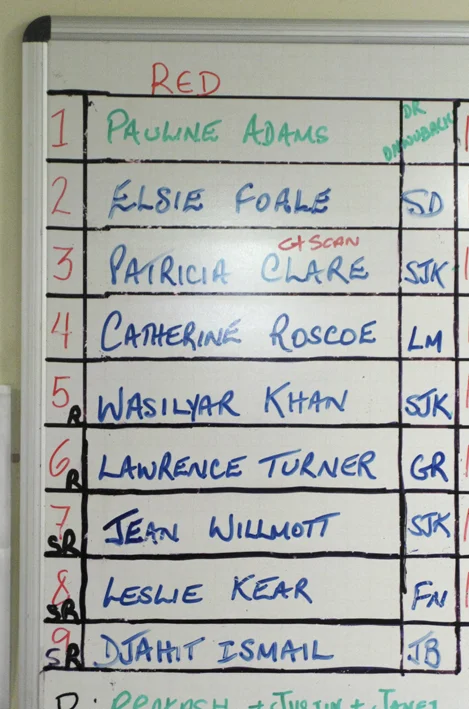 RED
1 PAULINE ADAMS DR
2 ELSIE FOALE SD
CT SCAN
3 PATRICIA CLARE SJK
4 CATHERINE ROSCOE LM
5 R WASILYAR KHAN SJK
6 R LAWRENCE TURNER GR
7 SR JEAN WILLMOTT SJK
8 SR LESLIE KEAR FN
9 SR DJAHIT ISMAIL JB